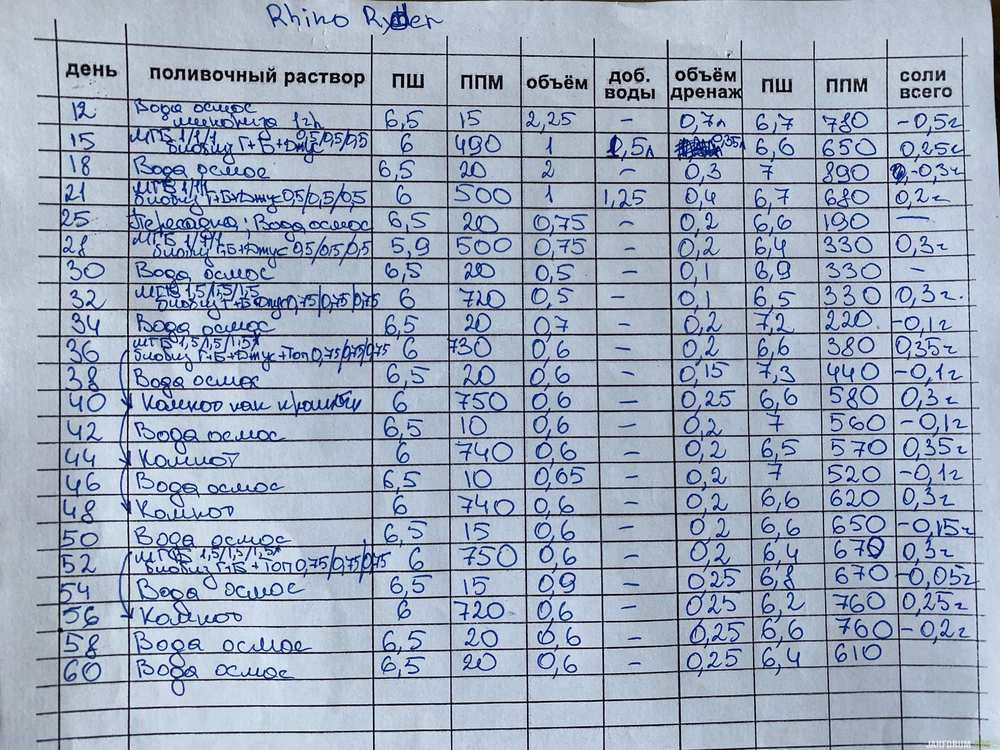 Rhino Ryder
день поливочный раствор ПШ ППМ объём доб. воды объём дренаж ПШ ППМ соли всего
12 Вода осмос 1 г/л 6,5 15 2,25 – 0,7л 6,7 780 -0,5г
15 МГБ 1/1/1 биобиз Г+Б+Джус 0,5/0,5/0,5 6 490 1 1,5л 0,35л 6,6 650 0,25г
18 Вода осмос 6,5 20 2 – 0,3 7 890 -0,3г
21 МГБ 1/1/1 биобиз Г+Б+Джус 0,5/0,5/0,5 6 500 1 1,25 0,4 6,7 680 0,2г
25 Пересадка; Вода осмос 6,5 20 0,75 – 0,2 6,6 190 —
28 МГБ 1/1/1 биобиз Г+Б+Джус 0,5/0,5/0,5 5,9 500 0,75 – 0,2 6,4 330 0,3г
30 Вода осмос 6,5 20 0,5 – 0,1 6,9 330 –
32 МГБ 1,5/1,5/1,5 биобиз Г+Б+Джус 0,75/0,75/0,75 6 720 0,5 – 0,1 6,5 330 0,3г.
34 Вода осмос 6,5 20 0,7 – 0,2 7,2 220 -0,1г
36 МГБ 1,5/1,5/1,5 биобиз Г+Б+Джус+Топ 0,75/0,75/0,75 6 730 0,6 – 0,2 6,6 380 0,35г
38 Вода осмос 6,5 20 0,6 – 0,15 7,3 440 -0,1г
40 Компот как 6 750 0,6 – 0,25 6,6 580 0,3г
42 Вода осмос 6,5 10 0,6 – 0,2 7 560 -0,1г
44 Компот 6 740 0,6 – 0,2 6,5 570 0,35г
46 Вода осмос 6,5 10 0,65 – 0,2 7 520 -0,1г
48 Компот 6 740 0,6 – 0,2 6,6 620 0,3г
50 Вода осмос 6,5 15 0,6 – 0,2 6,6 650 -0,15г
52 МГБ 1,5/1,5/1,5 биобиз Г+Б+Топ 0,75/0,75/0,75 6 750 0,6 – 0,2 6,4 670 0,3г
54 Вода осмос 6,5 15 0,9 – 0,25 6,8 670 -0,05г
56 Компот 6 720 0,6 – 0,25 6,2 760 0,25г
58 Вода осмос 6,5 20 0,6 – 0,25 6,6 760 -0,2г
60 Вода осмос 6,5 20 0,6 – 0,25 6,4 610